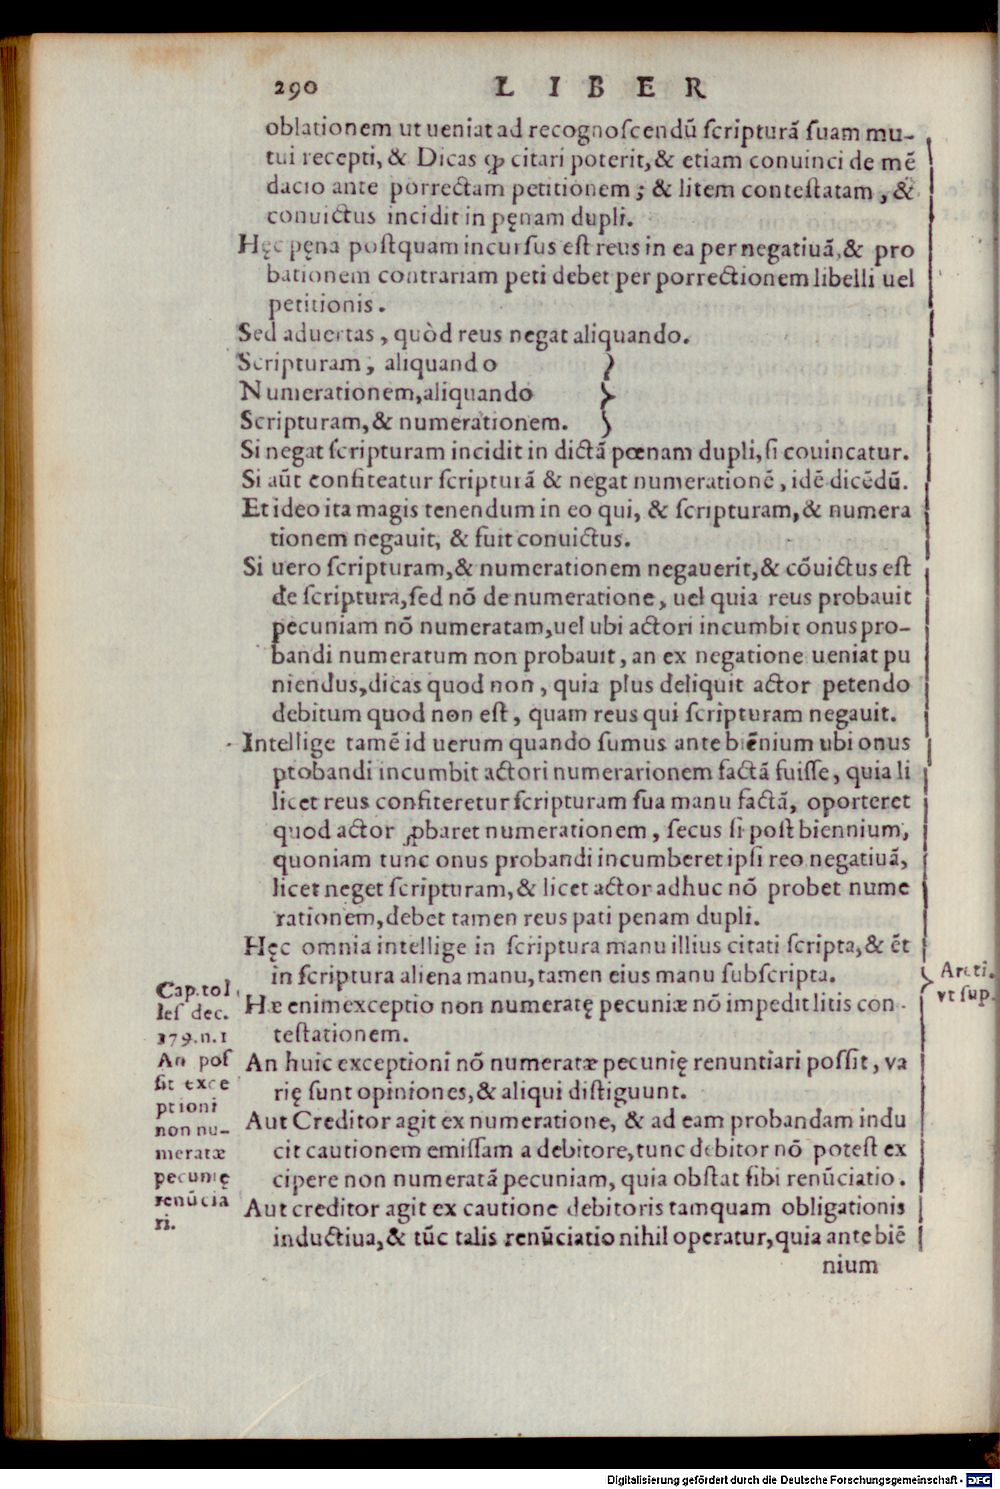 290 LIBER
oblationem ut ueniat ad recognoſcendū ſcripturā ſuam mu-
tui recepti, & Dicas ꝙ citari poterit, & etiam conuinci de mē
dacio ante porrectam petitionem ; & litem conteſtatam , &
conuictus incidit in pęnam dupli.
Hęc pęna poſtquam incurſus eſt reus in ea per negatiuā, & pro
bationem contrariam peti debet per porrectionem libelli uel
petitionis .
Sed aduertas , quòd reus negat aliquando.
Scripturam , aliquando }
Numerationem, aliquando }
Scripturam, & numerationem. }
Si negat ſcripturam incidit in dictā pœnam dupli, ſi couincatur.
Si aūt confiteatur ſcripturā & negat numerationē , idē dicēdū.
Et ideo ita magis tenendum in eo qui, & ſcripturam, & numera
tionem negauit, & fuit conuictus.
Si uero ſcripturam, & numerationem negauerit, & cōuictus eſt
de ſcriptura, ſed nō de numeratione , uel quia reus probauit
pecuniam nō numeratam, uel ubi actori incumbit onus pro-
bandi numeratum non probauit , an ex negatione ueniat pu
niendus, dicas quod non , quia plus deliquit actor petendo
debitum quod non eſt , quam reus qui ſcripturam negauit.
Intellige tamē id uerum quando ſumus ante biēnium ubi onus
ptobandi incumbit actori numerarionem factā fuiſſe , quia li
licet reus confiteretur ſcripturam ſua manu factā, oporteret
quod actor ꝓbaret numerationem , ſecus ſi poſt biennium,
quoniam tunc onus probandi incumberet ipſi reo negatiuā,
licet neget ſcripturam, & licet actor adhuc nō probet nume
rationem, debet tamen reus pati penam dupli.
Hęc omnia intellige in ſcriptura manu illius citati ſcripta, & ēt
in ſcriptura aliena manu, tamen eius manu ſubſcripta.
Areti.
vt ſup.
Hæ enim exceptio non numeratę pecuniæ nō impedit litis con-
teſtationem.
Cap. tol
leſ dec.
379. n. 1
An poſ
ſit exce
ptioni
non nu-
meratæ
pecunię
renūcia
ri.
An huic exceptioni nō numeratæ pecunię renuntiari poſſit , va
rię ſunt opiniones, & aliqui diſtiguunt.
Aut Creditor agit ex numeratione, & ad eam probandam indu
cit cautionem emiſſam a debitore, tunc debitor nō poteſt ex
cipere non numeratā pecuniam, quia obſtat ſibi renūciatio .
Aut creditor agit ex cautione debitoris tamquam obligationis
inductiua, & tūc talis renūciatio nihil operatur, quia ante biē
nium
Digitalisierung gefördert durch die Deutsche Forschungsgemeinschaft - DFG